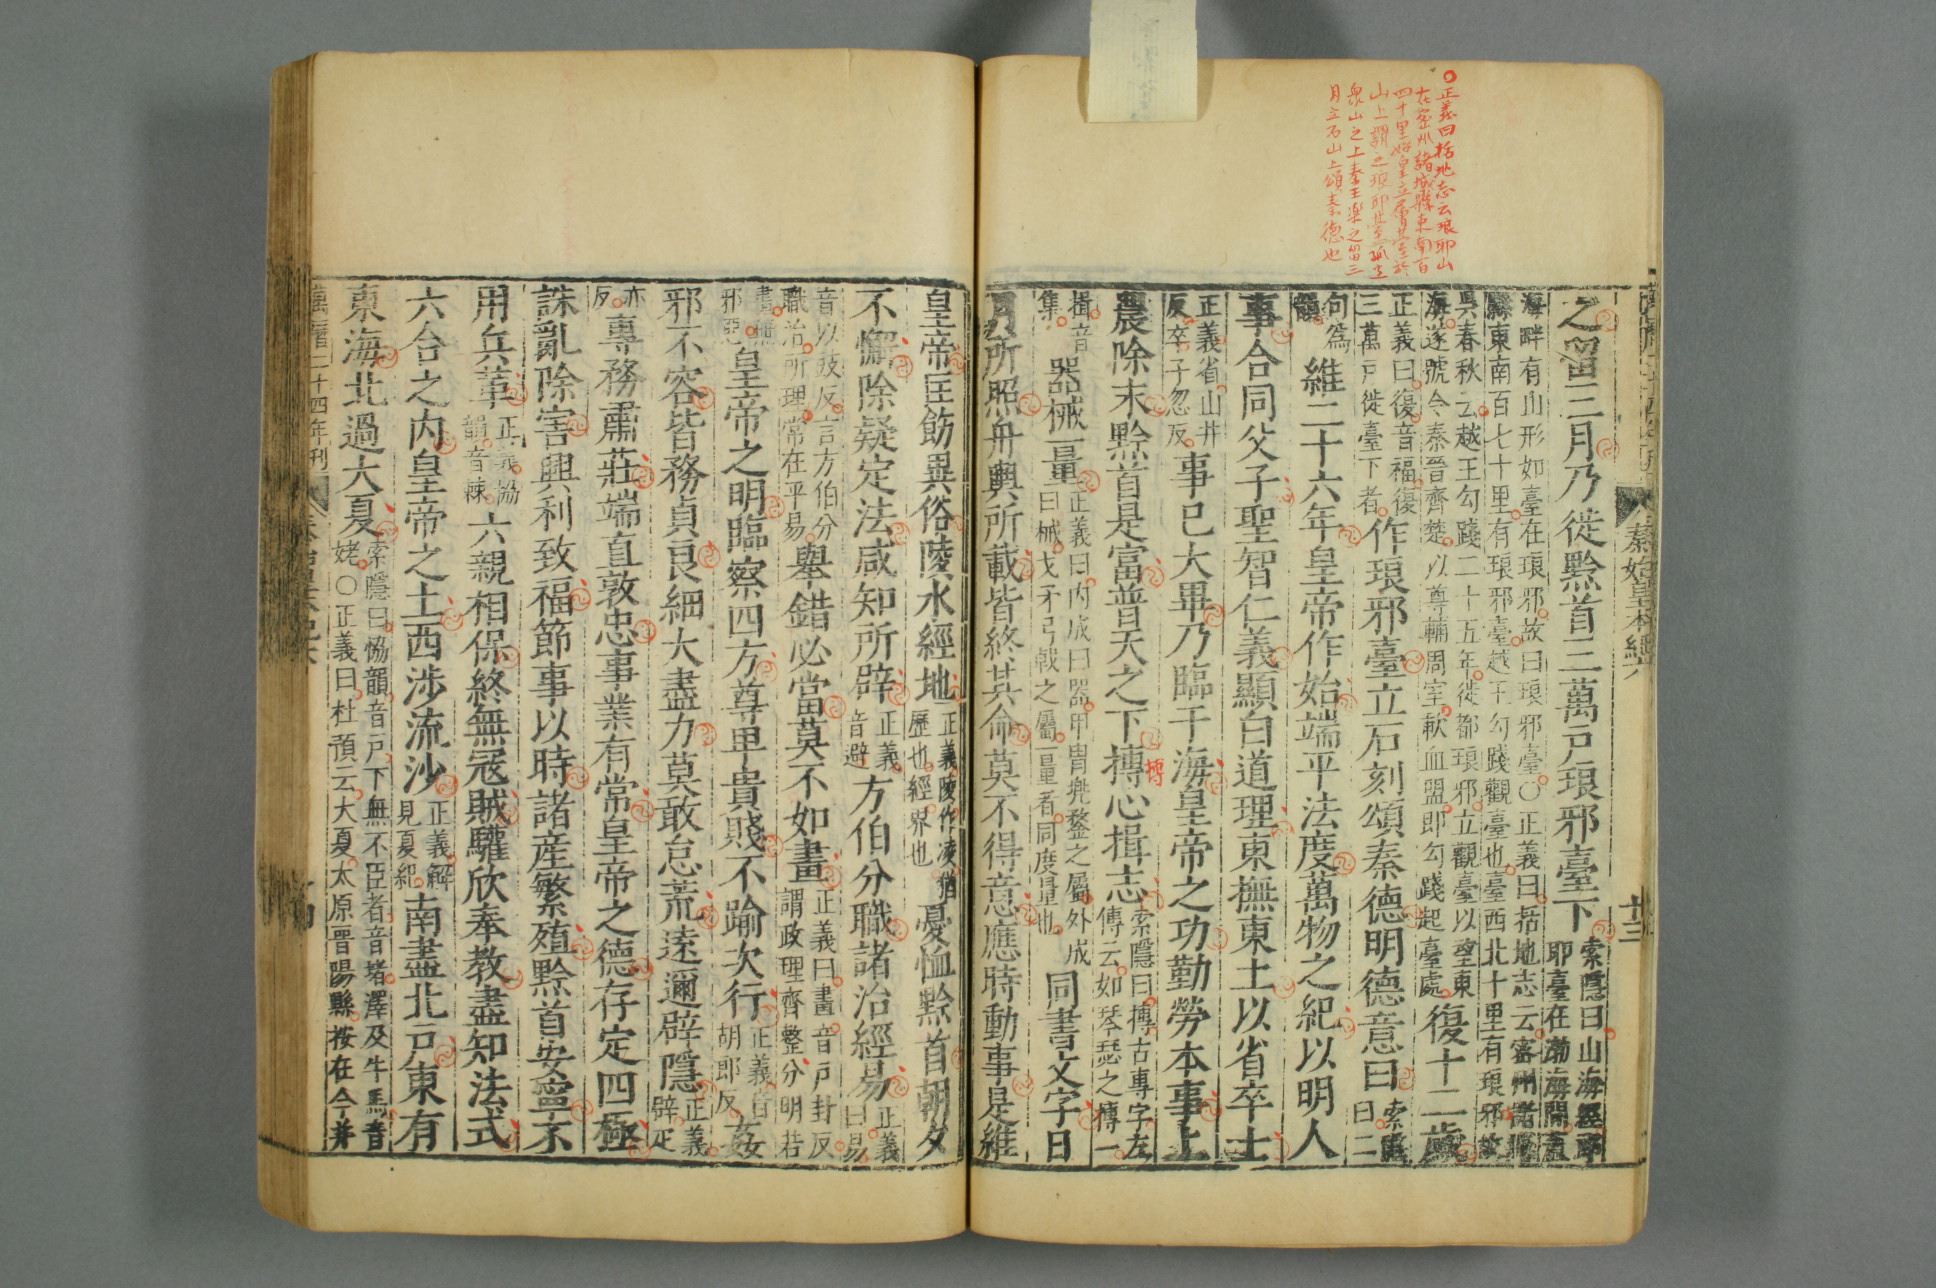 正義曰括地志云琅邪山
在密州諸城縣東南百
四十里始皇立層臺於
山上謂之琅邪臺孤立
衆山之上秦王樂之留三
月立石山上頌秦德也
秦始皇本紀六
十三
之留三月乃徙黔首三萬戶琅邪臺下
索隱曰山海經
耶臺在渤海間蓋
海畔有山形如臺在琅邪故曰琅邪臺○正義曰括地志云密州諸城
縣東南百七十里有琅邪臺越王勾踐觀臺也臺西北十里有琅邪故
吳春秋云越王勾踐二十五年徙都琅邪立觀臺以望東
海遂號令秦晉齊楚以尊輔周室歃血盟即勾踐起臺處
復十二歲
正義曰復音福復
三萬戶徙臺下者
作琅邪臺立石刻頌秦德明德意曰
索隱
曰二
句爲
韻
維二十六年皇帝作始端平法度萬物之紀以明人
事合同父子聖智仁義顯白道理東撫東土以省卒士
正義省山井
反卒子忽反
事已大畢乃臨于海皇帝之功勤勞本事上
農除末黔首是富普天之下摶心揖志
索隱曰摶古專字左
傳云如琴瑟之摶一
摶
揖音
集
器械一量
正義曰內成曰器甲胄兜鍪之屬外成
曰械戈矛弓戟之屬一量者同度量也
同書文字日
月所照舟輿所載皆終其命莫不得意應時動事是維
皇帝匡飭異俗陵水經地
正義陵作凌猶
歷也經界也
憂恤黔首朝夕
不懈除疑定法咸知所辟
正義
音避
方伯分職諸治經易
正義
曰易
音以豉反言方伯分
職治所理常在平易
舉錯必當莫不如畫
正義曰畫音戶卦反
謂政理齊整分明若
畫無
邪惡
皇帝之明臨察四方尊卑貴賤不踰次行
正義音
胡郎反
姦
邪不容皆務貞良細大盡力莫敢怠荒遠邇辟隱
正義
辟疋
亦
反
專務肅莊端直敦忠事業有常皇帝之德存定四極
誅亂除害興利致福節事以時諸産繁殖黔首安寧不
用兵革
正義協
韻音棘
六親相保終無寇賊驩欣奉教盡知法式
六合之內皇帝之土西涉流沙
正義解
見夏紀
南盡北戶東有
東海北過大夏
索隱曰協韻音戶下無不臣者音堵澤及牛馬音
姥○正義曰杜預云大夏太原晉陽縣按在今并
萬曆二十四年刊